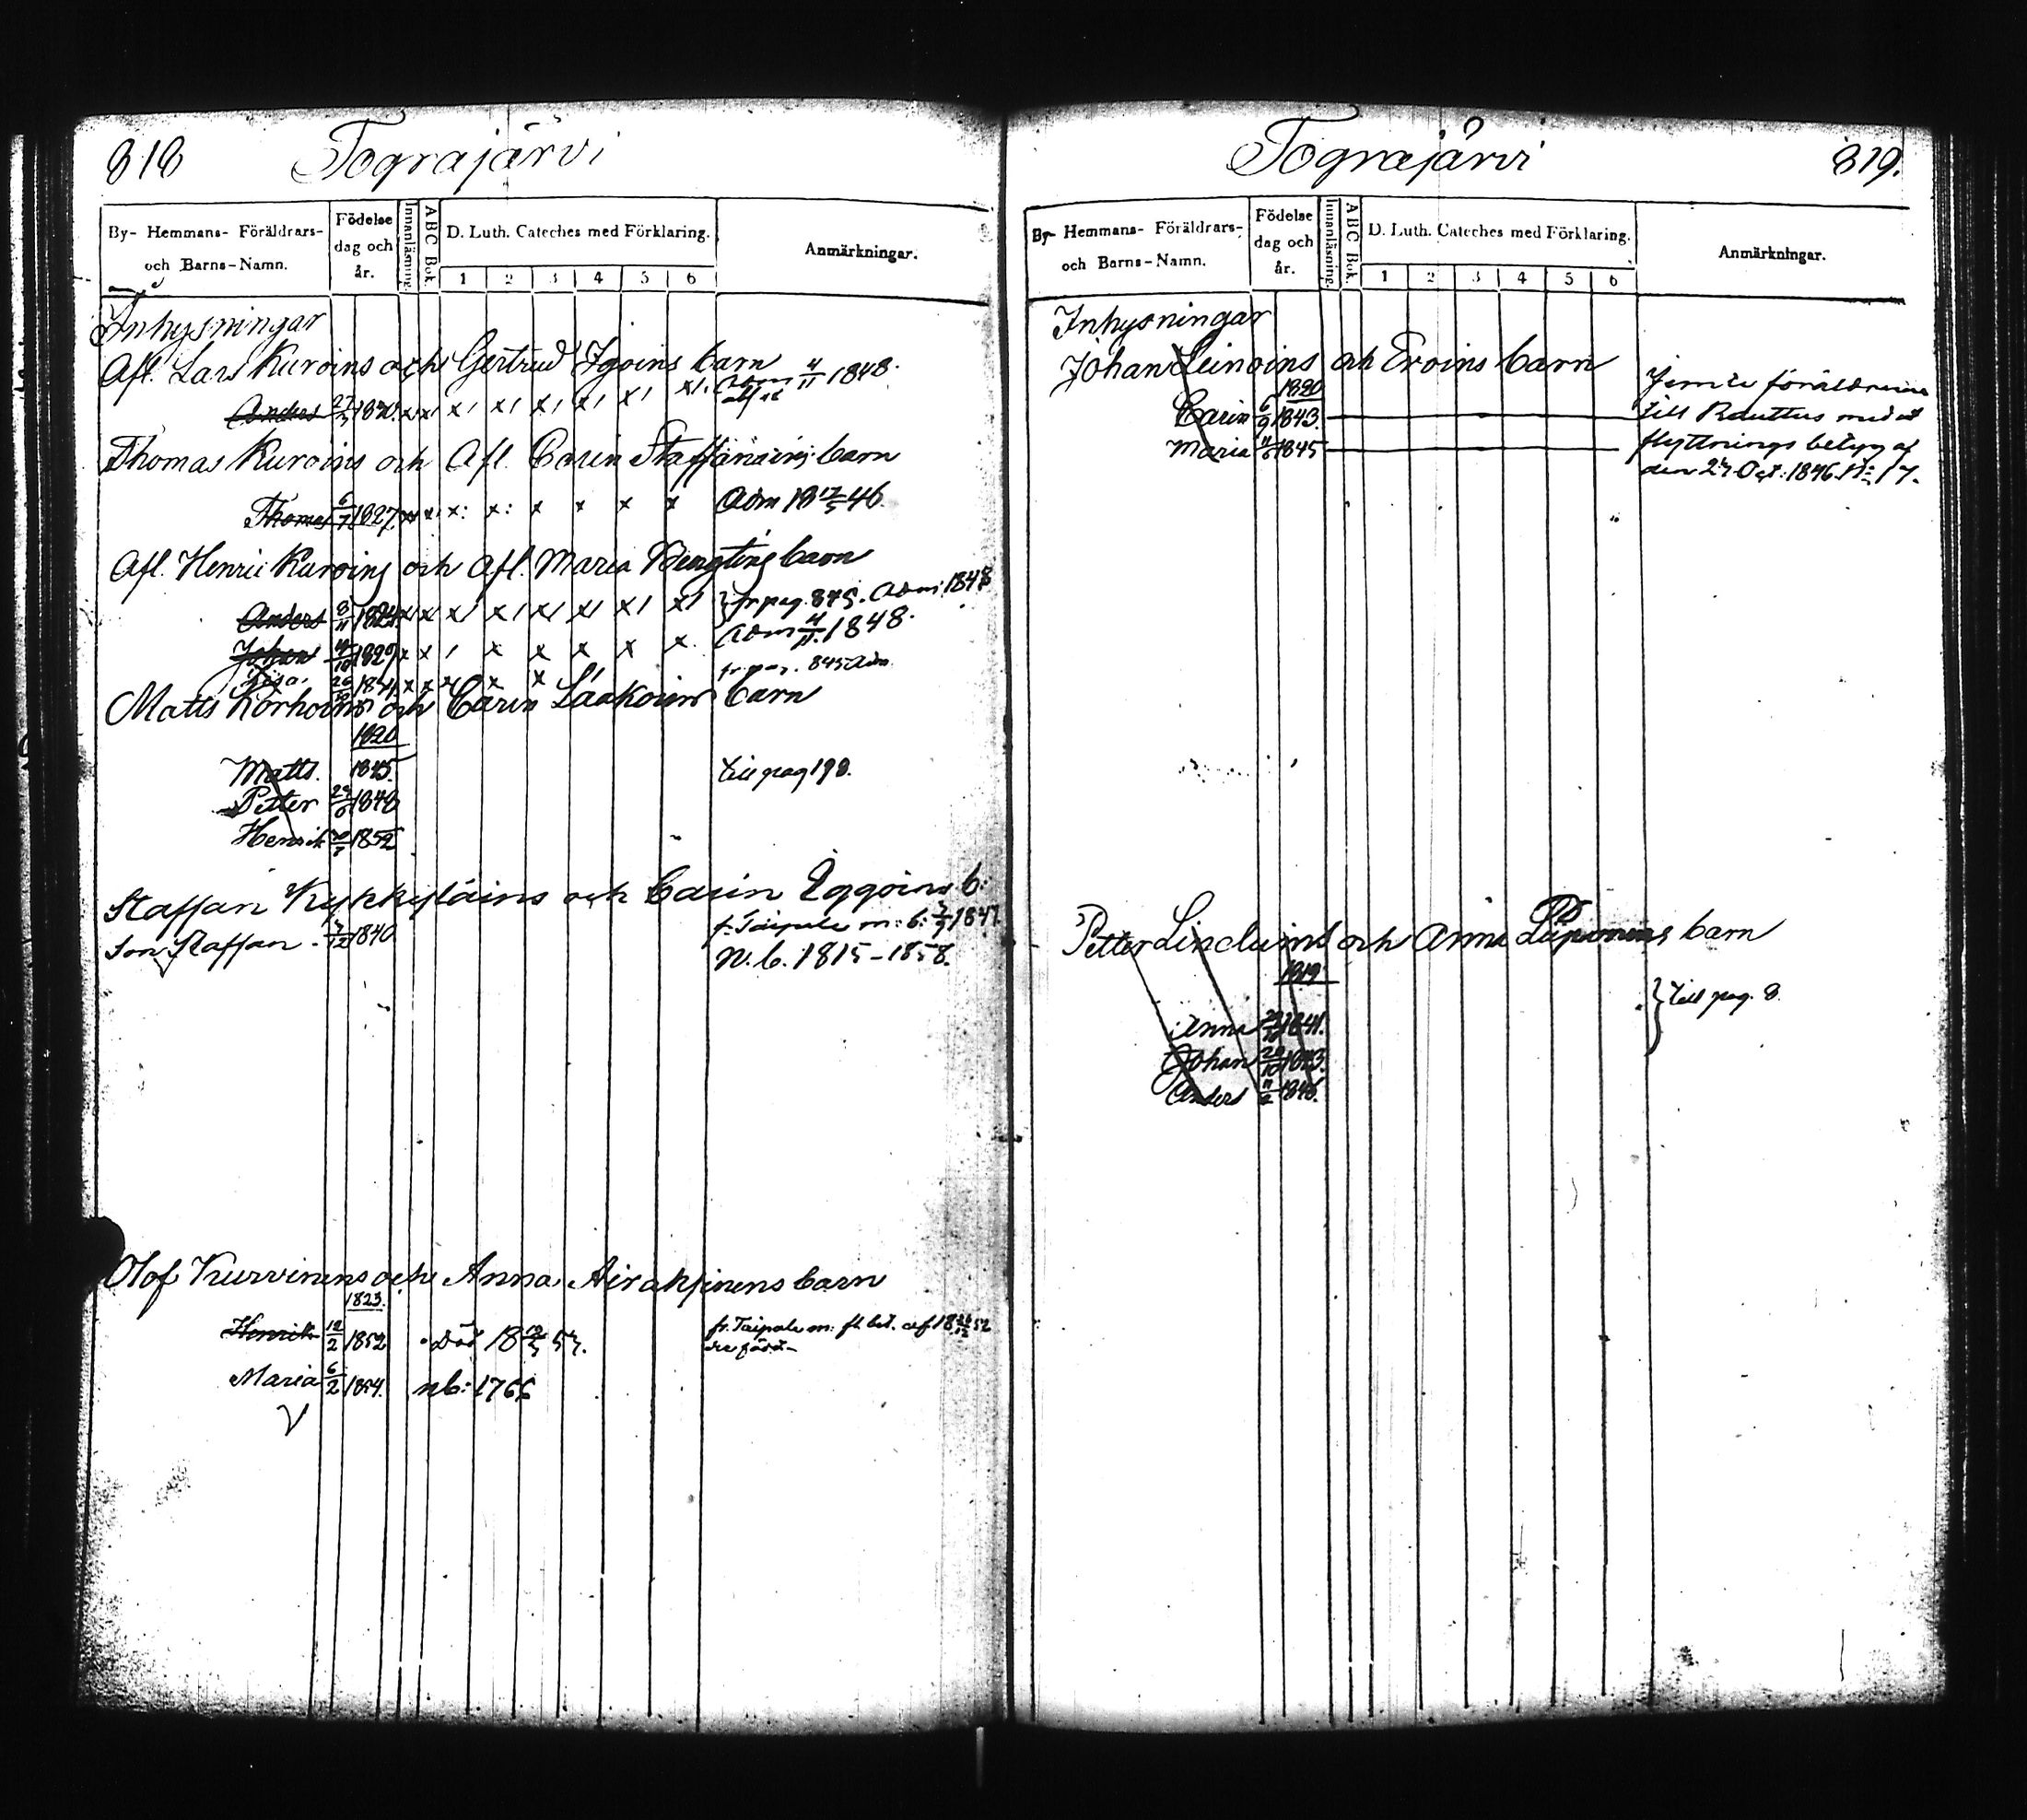 818 Tograjärvi
By- Hemmans- Föräldrars- och Barns-Namn.
Födelse dag och år.
Innanläsning
ABC Bok.
D. Luth. Cateches med Förklaring.
1 2 3 4 5 6
Anmärkningar.
Inhysningar
Afl. Lars Kuroins och Gertrud Igoins barn
Anders 1830. x x x x x x x x Adm 4/11 1848.
Thomas Kuroins och Afl. Carin Staffanäins barn
Thomas 6/7 1827. x x x: x: x x x x Adm 18 17/5 46.
Afl. Henric Kuroins och Afl. Maria Bengtins barn
Anders 8/11 1824. x x x x x x x x fr pag. 845. Adm: 1848
Johan 1829 x x x x x x x Adm 4/11 1848.
Lisa. 1831. x x x x x fr pag. 845 Adm.
Matts Korhoins och Carin Laakoins barn
1820
Matts. 1845. till pag 198.
Petter 1848
Henrik 1852
Staffan Kykkyläins och Carin Eggoins b:
Son Staffan. 1840 fr. Taipale m: b: 1847
N. b. 1815-1858.
Olof Kurvinens och Anna Airaksinens barn
1823.
Henrik 12/2 1852 död 18 53. fr. Taipale m: fl. bet. af 18 52
Maria 6/2 1854. nb: 1766
Tograjärvi 819.
By- Hemmans- Föräldrars- och Barns-Namn.
Födelse dag och år.
Innanläsning
ABC Bok.
D. Luth. Cateches med Förklaring.
1 2 3 4 5 6
Anmärkningar.
Inhysningar
Johan Leinoins och Eroins barn
1820
Carin 6/9 1843.
Maria 1845
Jemte föräldrarne
till Rauttus med ett
flyttnings betyg af
den 27 Oct: 1846. N: 17.
Petter Lindeins och Anna Liiponens barn
1819
till pag. 8.
Anna 1841.
Johan 20/10 1843.
Anders 1846.